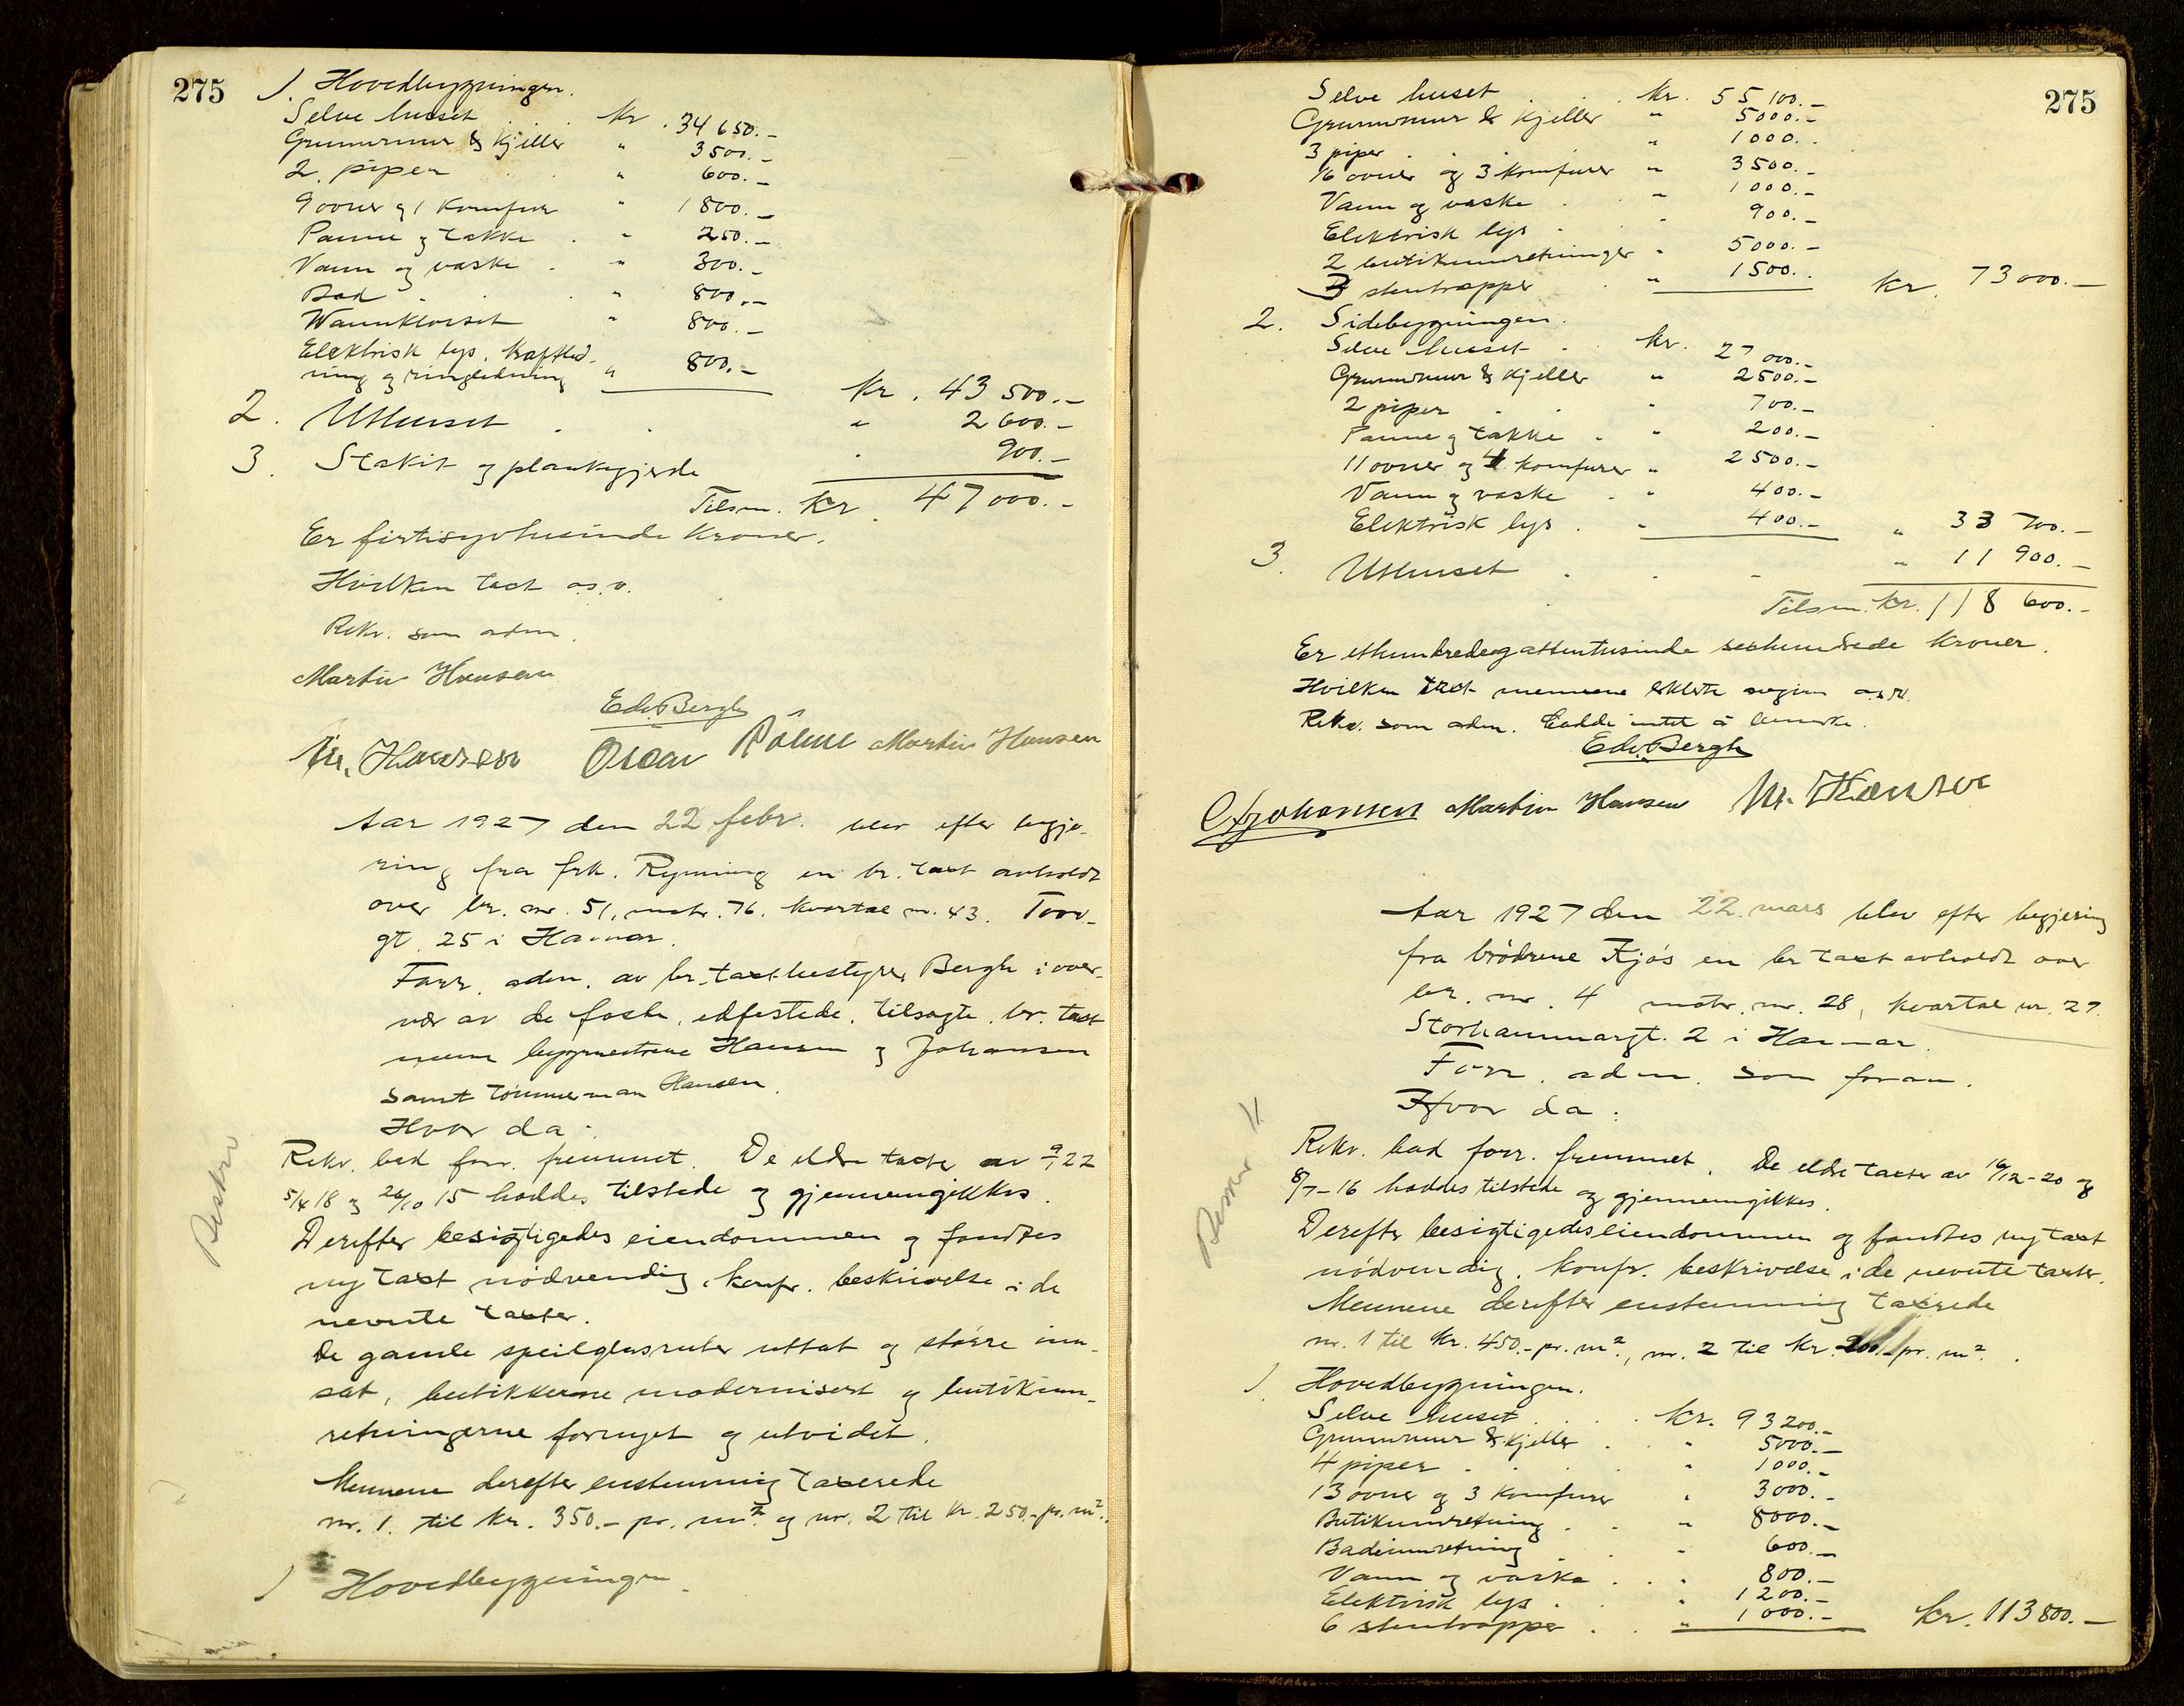 275
1. Hovedbygningen.
Selve huset . . kr. 34 650.-
Grunnmur & kjeller " 3 500.-
2. piper . . " 600.-
9 ovner og 1 komfur " 1 800.-
Panne og takke . " 250.-
Vann og vaske . " 300.-
Bad . . . " 800.-
Wannklosset " 800.-
Elektrisk lys, kraftled-
ning og ringledning " 800.-
kr. 43 500.-
2. Uthuset . . " 2 600.-
3. Stakit og plankegjerde " 900.-
Tilsm. kr. 47 000.-
Er førtisyvtusinde kroner.
Hvilken taxt o.s.v.
Rekv. som aden.
Martin Hansen
Edv. Bergh
M. Hansen Oscar Martin Hansen
Aar 1927 den 22 febr. blev efter begjæ-
ring fra frk. Rynning en br. taxt avholdt
over br. nr. 51, matr. 76. kvartal nr. 43. Torv-
gt. 25 i Hamar.
Forr. adm. av br. taxtbestyrer Bergh i over-
vær av de faste, edfestede, tilsagte br. taxt
menn byggmestrene Hansen og Johansen
samt tømmerman Hansen.
Hvor da:
Rekv. bad forr. fremmet. De eldre taxter av 9/1 22
5/4 18 og 26/10 15 haddes tilstede og gjennemgikkes.
Derefter besigtigedes eiendommen og fandtes
ny taxt nødvendig, konfr. beskrivelse i de
nevnte taxter.
De gamle speilglasruter uttat og større inn-
sat, butikkerne modernisert og butikinn-
retningerne fornyet og utvidet.
Mennene derefter enstemmig taxerede
nr. 1. til kr. 350.- pr. m² og nr. 2 til kr. 250.- pr. m².
1 Hovedbygningen.
275
Selve huset . . . kr. 55 100.-
Grunnmur & kjeller " 5000.-
3 piper . . " 1000.
16 ovner og 3 komfurer " 3500.-
Vann og vaske . " 1000.-
Elektrisk lys . . 900.-
2 butikinnretninger " 5000.-
3 stentrapper . " 1500. kr. 73 000.-
2. Sidebygningen.
Selve huset . kr. 27 000.-
Grunnmur & kjeller " 2500.-
2 piper . . " 700.-
Panne og takke . " 200.-
11 ovner og 4 komfurer " 2500.-
Vann og vaske . " 400.-
Elektrisk lys . " 400.- " 33 700.-
3. Uthuset . . - " 11 900.-
Tilsm. kr. 118 600.-
Er ethundredeogattentusinde sekshundrede kroner.
Hvilken taxt mennene erklærte avgivn o.s.v.
Rekv. som aden. Hadde intet å bemerke.
Edv. Bergh
Johansen Martin Hansen M. Hansen
Aar 1927 den 22. mars blev efter begjæring
fra brødrene Kjøs en br taxt avholdt over
br. nr. 4 matr. nr. 28, kvartal nr. 27.
Storhammargt. 2 i Hamar.
Forr. adm. som foran.
Hvor da:
Rekv. bad forr. fremmet. De eldre taxter av 16/12-20 og
8/7-16 haddes tilstede og gjennemgikkes.
Derefter besigtigedes eiendommen og fandtes ny taxt
nødvendig. konfr. beskrivelse i de nevnte taxter.
Mennene derefter enstemmig taxerede
nr. 1 til kr. 450.- pr. m², nr. 2 til kr. pr. m².
1 Hovedbygningen.
Selve huset . . . kr. 93 200.-
Grunnmur & kjeller . " 5000.-
4 piper . . . " 1000.-
13 ovner og 3 komfurer " 3000.-
Butikinnretning . . " 8000.-
Badeinnretning . . " 600.-
Vann og vaske . . " 800.-
Elektrisk lys . . " 1200.-
6 stentrapper . . " 1000.- kr. 113 800.-